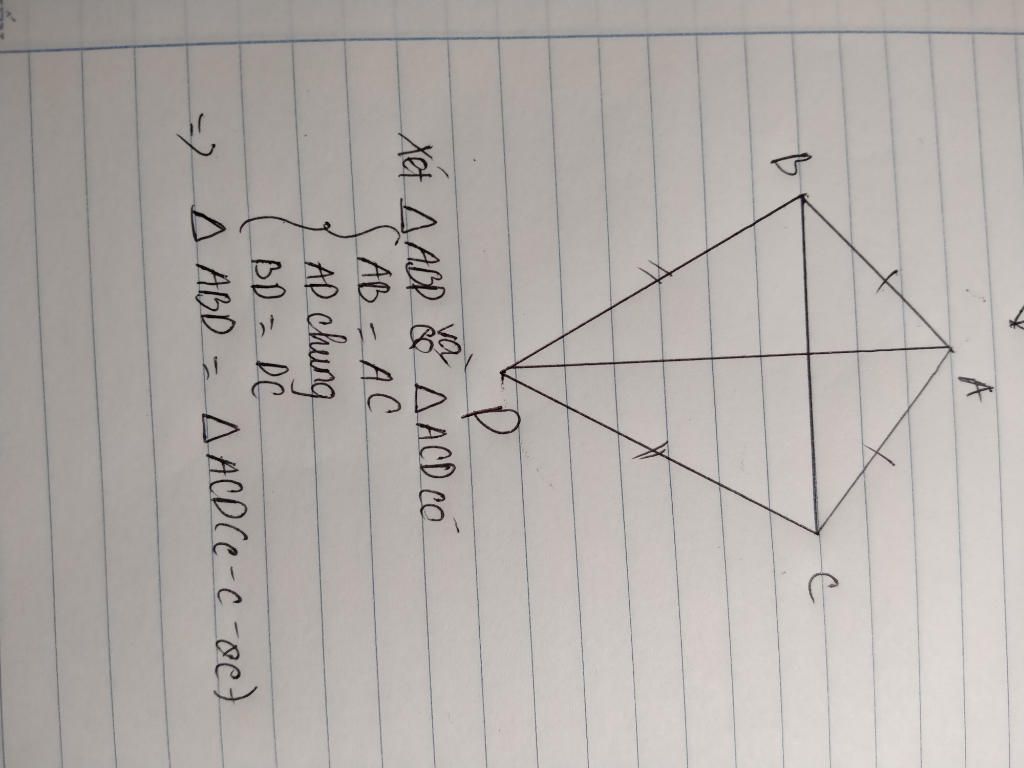 A
B
C
D
Xét △ ABD và △ ACD có
AB = AC
AD chung
BD = DC
=> △ ABD = △ ACD (c - c - c)